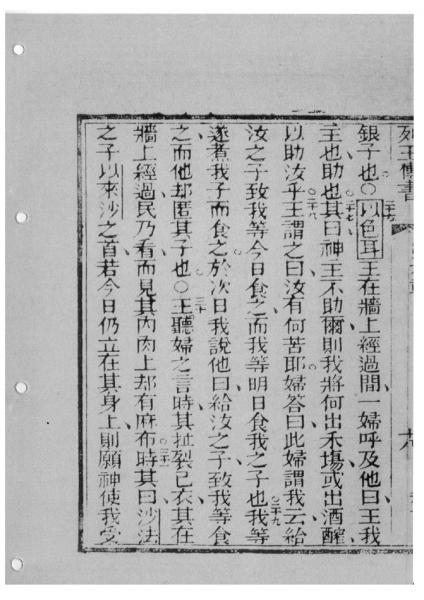 列王傳書
銀子也○以色耳王在牆上經過間一婦呼及他曰王我
二十六
主也助也其曰神主不助爾則我將何出禾塲或出酒醡
二十七
以助汝乎王謂之曰汝有何苦耶婦答曰此婦謂我云給
二十八
汝之子致我等今日食之而我等明日食我之子也我等
二十九
遂煮我子而食之於次日我說他曰給汝之子致我等食
之而他却匿其子也○王聽婦之言時其扯裂己衣其在
三十
牆上經過民乃看而見其內肉上却有麻布時其曰沙法
三十一
之子以來沙之首若今日仍立在其身上則願神使我受